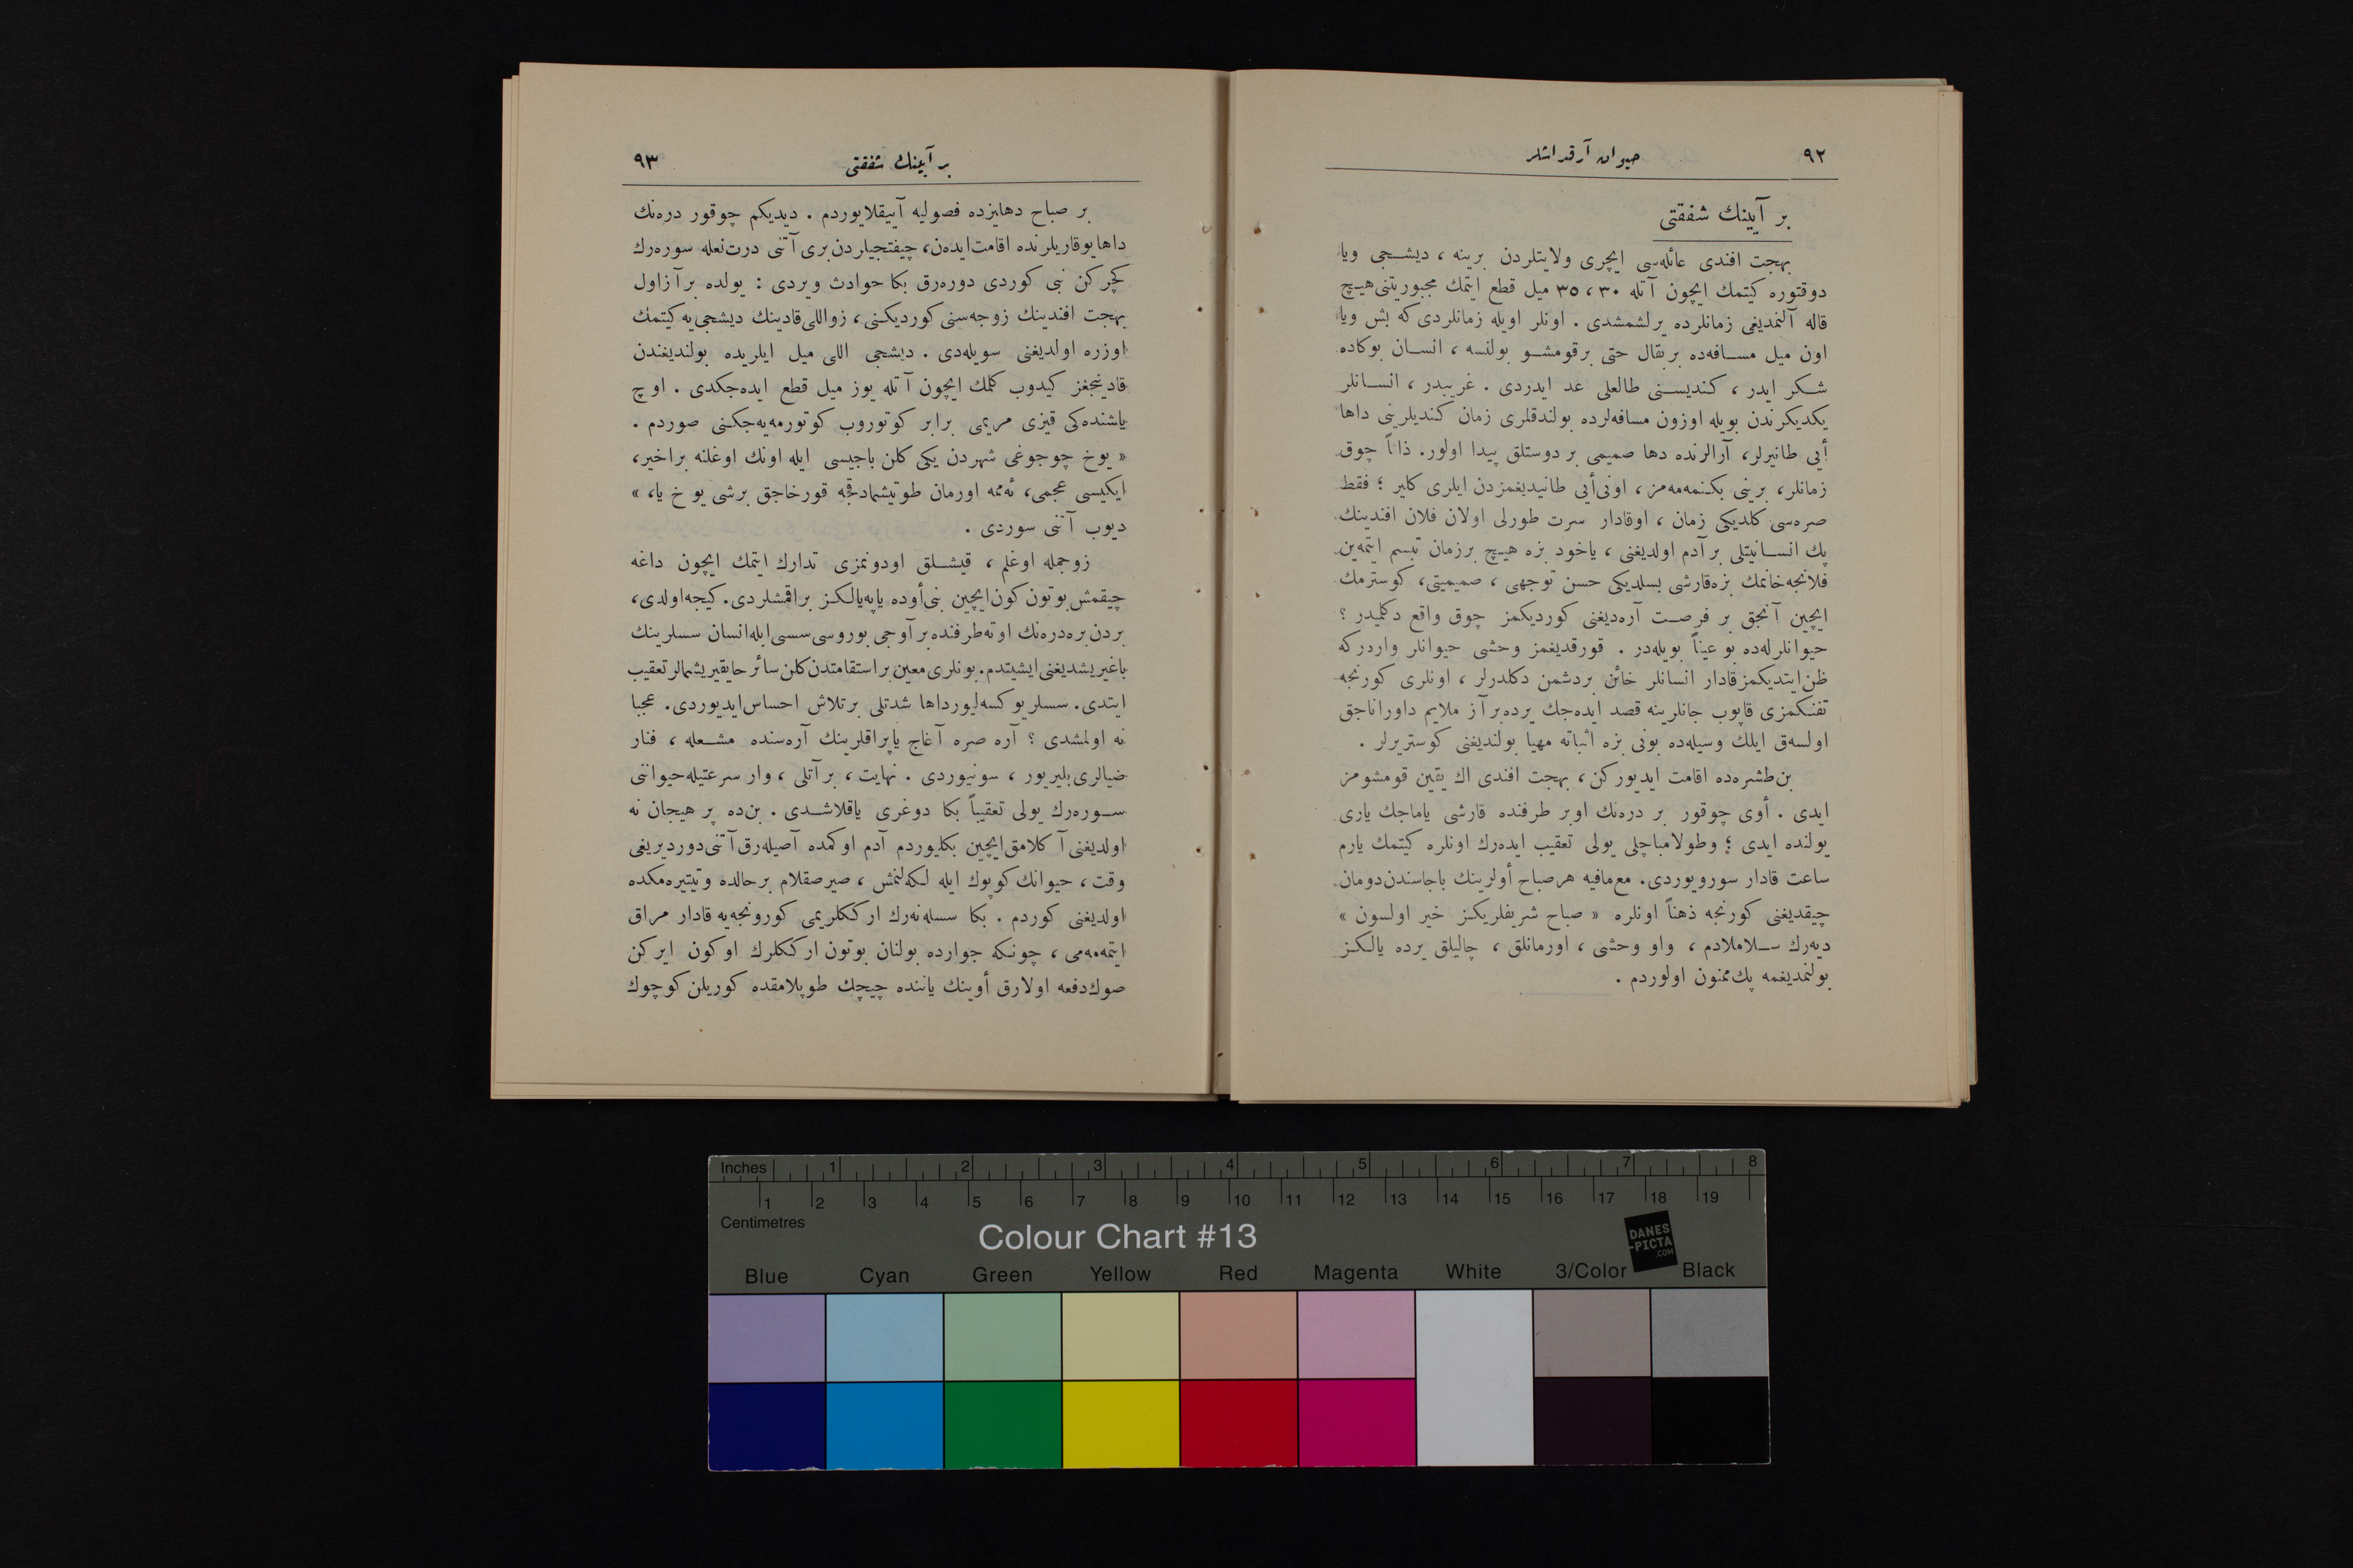 ٩٢
حیوان آرقداشلر
بر آیینك شفقتی
بهجت افندی عائله‌سی ایچری ولایتلردن برینه ، دیشـجی ویا
دوقتوره کیتمك ایچون آتله ٣٠ ، ٣٥ میل قطع ایتمك مجبوریتنی هیـچ
قاله آلنمدیغی زمانلرده یرلشمشدی . اونلر اویله زمانلردی که بش ویا
اون میل مسـافه‌ده بر بقال حتی بر قومشـو بولنسه ، انسـان بوکاده
شـکر ایدر ، کندیسـنی طالعلی عد ایدردی . غریبدر ، انسـانلر
یکدیکرندن بویله اوزون مسافه‌لرده بولندقلری زمان کندیلرینی داها
أیی طانیرلر، آرالرنده دها صمیمی بر دوستلق پیدا اولور. ذاتاً چوق
زمانلر، برینی بکـنمه‌مه‌مز، اونی أیی طانیدیغمزدن ایلری کلیر ؛ فقط
صره‌سی کلدیکی زمان ، اوقادار سرت طورلی اولان فلان افندینك
پك انسـانیتلی بر آدم اولدیغنی ، یاخود بزه هیـچ بر زمان تبسم ایتمه‌ین
فلانجه خانمك بزه قارشی بسلدیکی حسن توجهی ، صمیمیتی، کوسترمك
ایچین آنجق بر فرصـت آره‌دیغنی کوردیکمز چوق واقع دکلمیدر ؟
حیوانلرله‌ده بو عیناً بویله‌در . قورقدیغمز وحشی حیوانلر واردرکه
ظن ایتدیکمز قادار انسانلر خائن بر دشمن دکلدرلر ، اونلری کورنجه
تفنـکمزی قاپوب جانلرینه قصد ایده‌جك یرده بر آز ملایم داورانا‌جق
اولسه‌ق ایلك وسیله‌ده بونی بزه اثباته مهیا بولندیغنی کوستریرلر .
بن طشره‌ده اقامت ایدیورکن ، بهجت افندی اك یقین قومشومز
ایدی . أوی چوقور بر دره‌نك اوبر طرفنده قارشی یاماجك یاری
یولنده ایدی ؛ وطولامباچلی یولی تعقیب ایده‌رك اونلره کیتمك یارم
ساعت قادار سورویوردی. مع‌مافیه هر صباح أولرینك باجاسندن دومان
چیقدیغنی کورنجه ذهناً اونلره « صباح شریفلریکـز خیر اولسون »
دیه‌رك سـلاملادم ، واو وحشی ، اورمانلق ، چالیلق یرده یالـکـز
بولنمدیغمه پك ممنون اولوردم .
بر آیینك شفقتی
٩٣
بر صباح دهلیزده فصولیه آییقلایوردم . دیدیکم چوقور دره‌نك
داها یوقاریلرنده اقامت ایده‌ن، چیفتجیلردن بری آتنی درت نعله سوره‌رك
کچرکن بنی کوردی دوره‌رق بکا حوادث ویردی : یولده بر آز اول
بهجت افندینك زوجه‌سنی کوردیکـنی، زواللی قادینك دیشجی‌یه کیتمك
اوزره اولدیغنی سویله‌دی . دیشجی اللی میل ایلریده بولندیغندن
قادینجغز کیدوب کلمك ایچون آتله یوز میل قطع ایده‌جکدی . اوچ
یاشنده‌کی قیزی مریمی برابر کوتوروب کوتورمه‌یه‌جکـنی صوردم .
« یوخ چوجوغی شهردن یکی کلن باجیسی ایله اونك اوغلنه براخیر،
ایکیسی عجمی، ئه‌ممه اورمان طوتیشمادقجه قورخاجق برشی یو خ یا، »
دیوب آتنی سوردی .
زوجمله اوغلم ، قیشـلق اودونمزی تدارك ایتمك ایچون داغه
چیقمش بوتون کون ایچین بنی أوده یاپه‌یالـکـز براقمشلردی. کیجه اولدی،
بردن بره دره‌نك اوته طرفنده بر آوجی بوروسی سسی ایله انسان سسلرینك
باغیریشدیغنی ایشیتدم. بونلری معین بر استقامتدن کلن سائر حایقیریشمالر تعقیب
ایتدی. سسلر یوکسه‌لیور داها شدتلی بر تلاش احساس ایدیوردی. عجبا
نه اولمشدی ؟ آره صره آغاج یاپراقلرینك آره‌سنده مشـعله ، فنار
ضیالری بلیریور ، سونیوردی . نهایت ، بر آتلی ، وار سرعتیله حیواننی
سـوره‌رك یولی تعقیباً بکا دوغری یاقلاشـدی . بن‌ده پر هیجان نه
اولدیغنی آکلامق ایچین بکلیوردم آدم اوکمده آصیله‌رق آتنی دوردیریغی
وقت ، حیوانك کوپوك ایله لـکه‌لنمش ، صیرصقلام بر حالده وتیتیره‌مکده
اولدیغنی کوردم . بکا سسله‌نه‌رك ارککلریمی کورونجه‌یه قادار مراق
ایتمه‌مه‌می ، چونـکه جوارده بولنان بوتون ارککلرك اوکون ایرکن
صوك دفعه اولارق أوینك یاننده چیچك طوپلامقده کوریلن کوچوك
Inches 1 2 3 4 5 6 7 8
1 2 3 4 5 6 7 8 9 10 11 12 13 14 15 16 17 18 19
Centimetres
Colour Chart #13
DANES
-PICTA
.COM
Blue Cyan Green Yellow Red Magenta White 3/Color Black